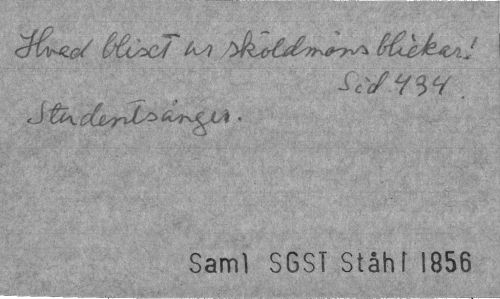 Hvad blixt ur sköldmöns blickar!
Sid 434.
Studentsånger.
Saml SGST Ståhl 1856